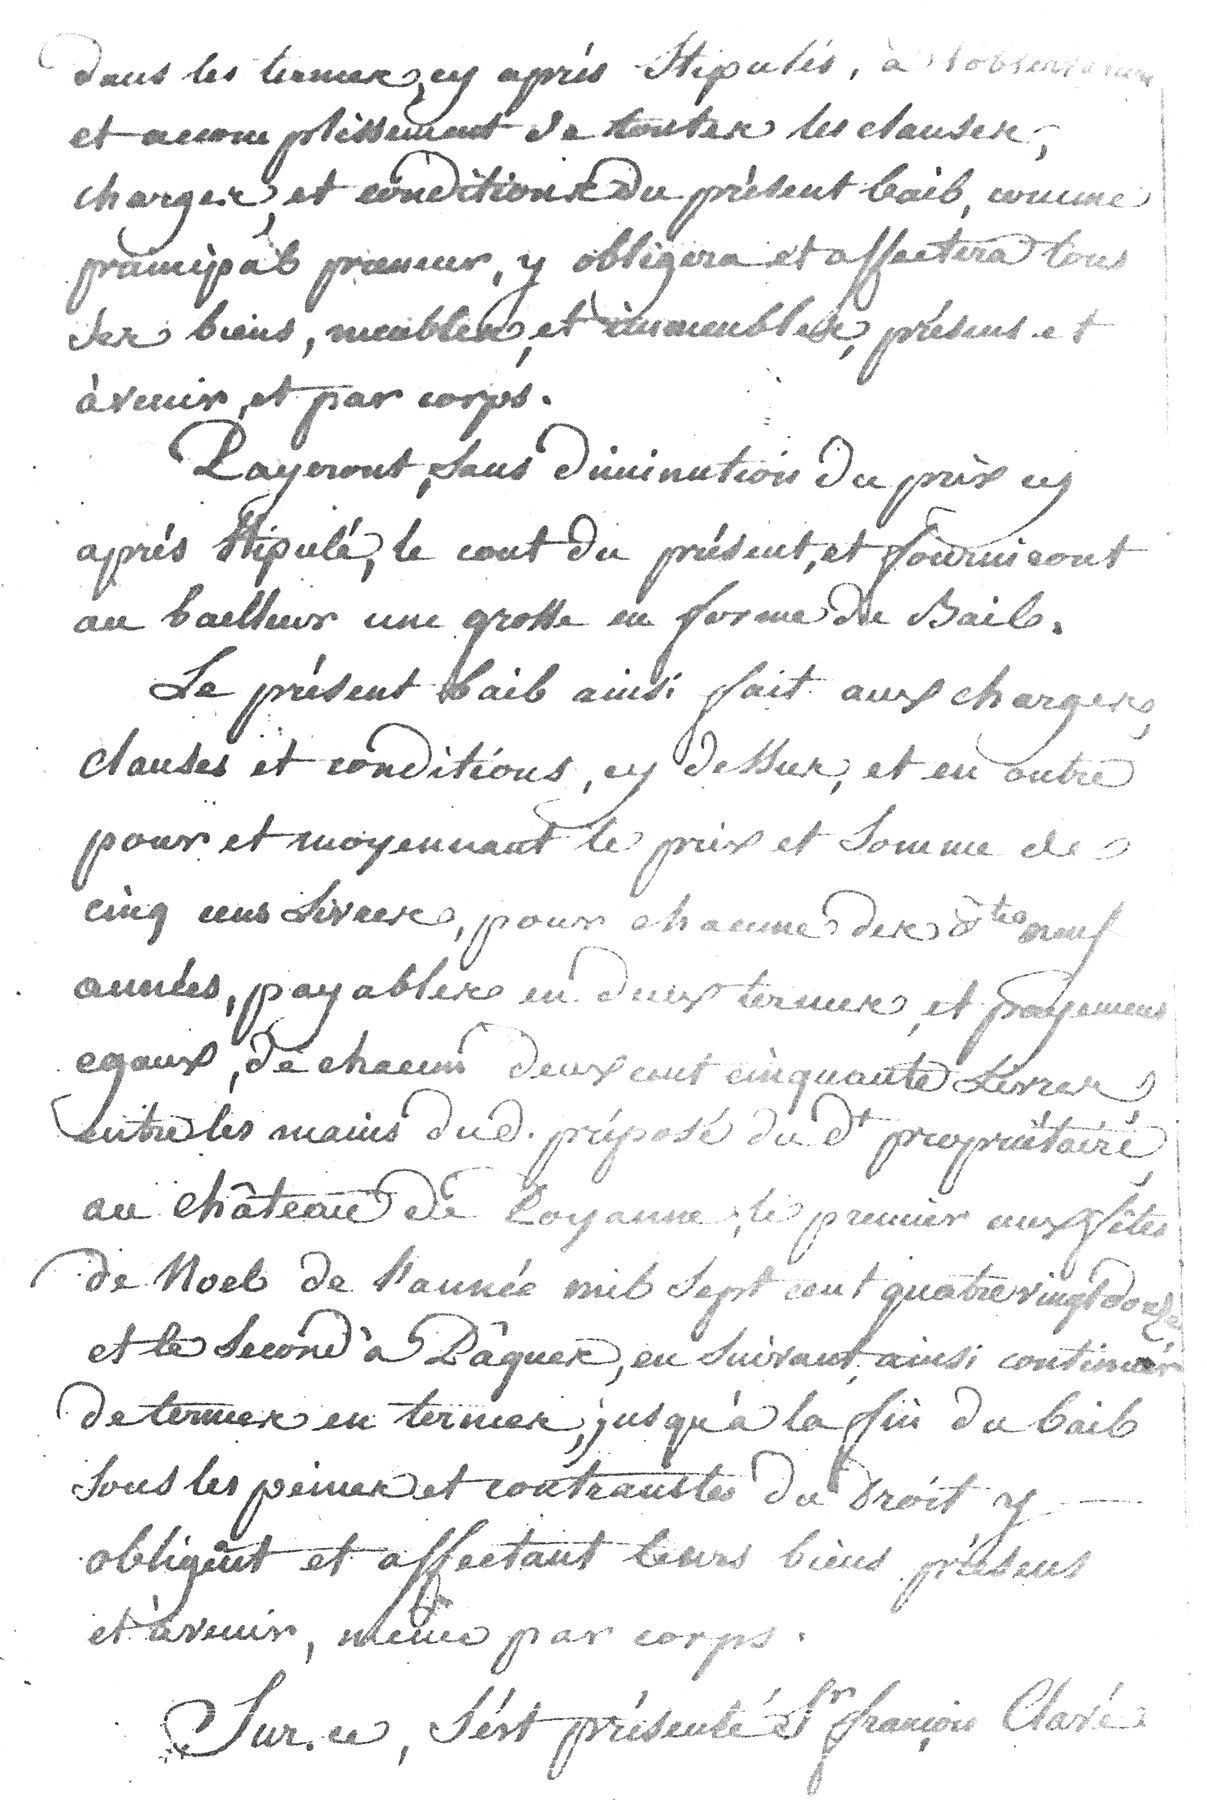 dans les termes cy aprés Stipulés, à l'observation
et accomplissement de toutes les clauses,
charges, et conditions du présent bail, comme
principal preneur, y obligera et affectera tous
ses biens, meubles, et immeubles, présens et
àvenir, et par corps.
Payeront, Sans diminution du prix cy
aprés Stipulé, le cout du présent, et fourniront
au bailleur une grosse en forme du Bail.
Le présent bail ainsi fait aux charges,
clauses et conditions, cy dessus, et en outre
pour et moyennant le prix et Somme de
cinq cens Livres, pour chacune des dtes neuf
années, payables en deux termes, et payemens
egaux, de chacun deux cent cinquante Livres
entre les mains dud. préposé du dt propriétaire
au château de Poyanne, le premier aux fêtes
de Noel de l'année mil Sept cent quatre vingt douze,
et le Second à Pâques, en Suivant, ainsi continuer
de termes en termes, jusqu'à la fin du bail
Sous les peines et contraintes du Droit y
obligént et affectant leurs biens présens
et àvenir, même par corps.
Sur ce, S'ést présenté Sr françois Claré